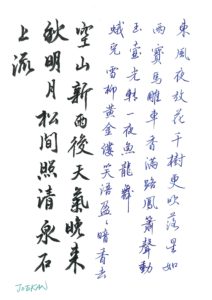 東風夜放花千樹更吹落星如
雨寶馬雕車香滿路鳳簫聲動
玉壺光轉一夜魚龍舞
蛾兒雪柳黃金縷笑語盈〻暗香去
空山新雨後天氣晚來
秋明月松間照清泉石
上流